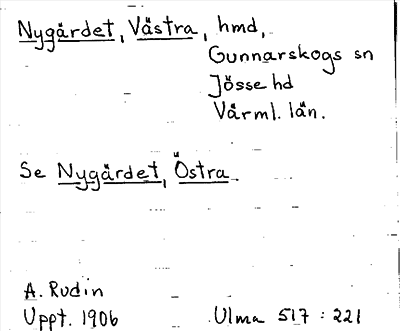 Nygärdet, Västra, hmd,
Gunnarskogs sn
Jösse hd
Värml. län.
Se Nygärdet, Östra.
A. Rudin
Uppt. 1906 Ulma 517 : 221